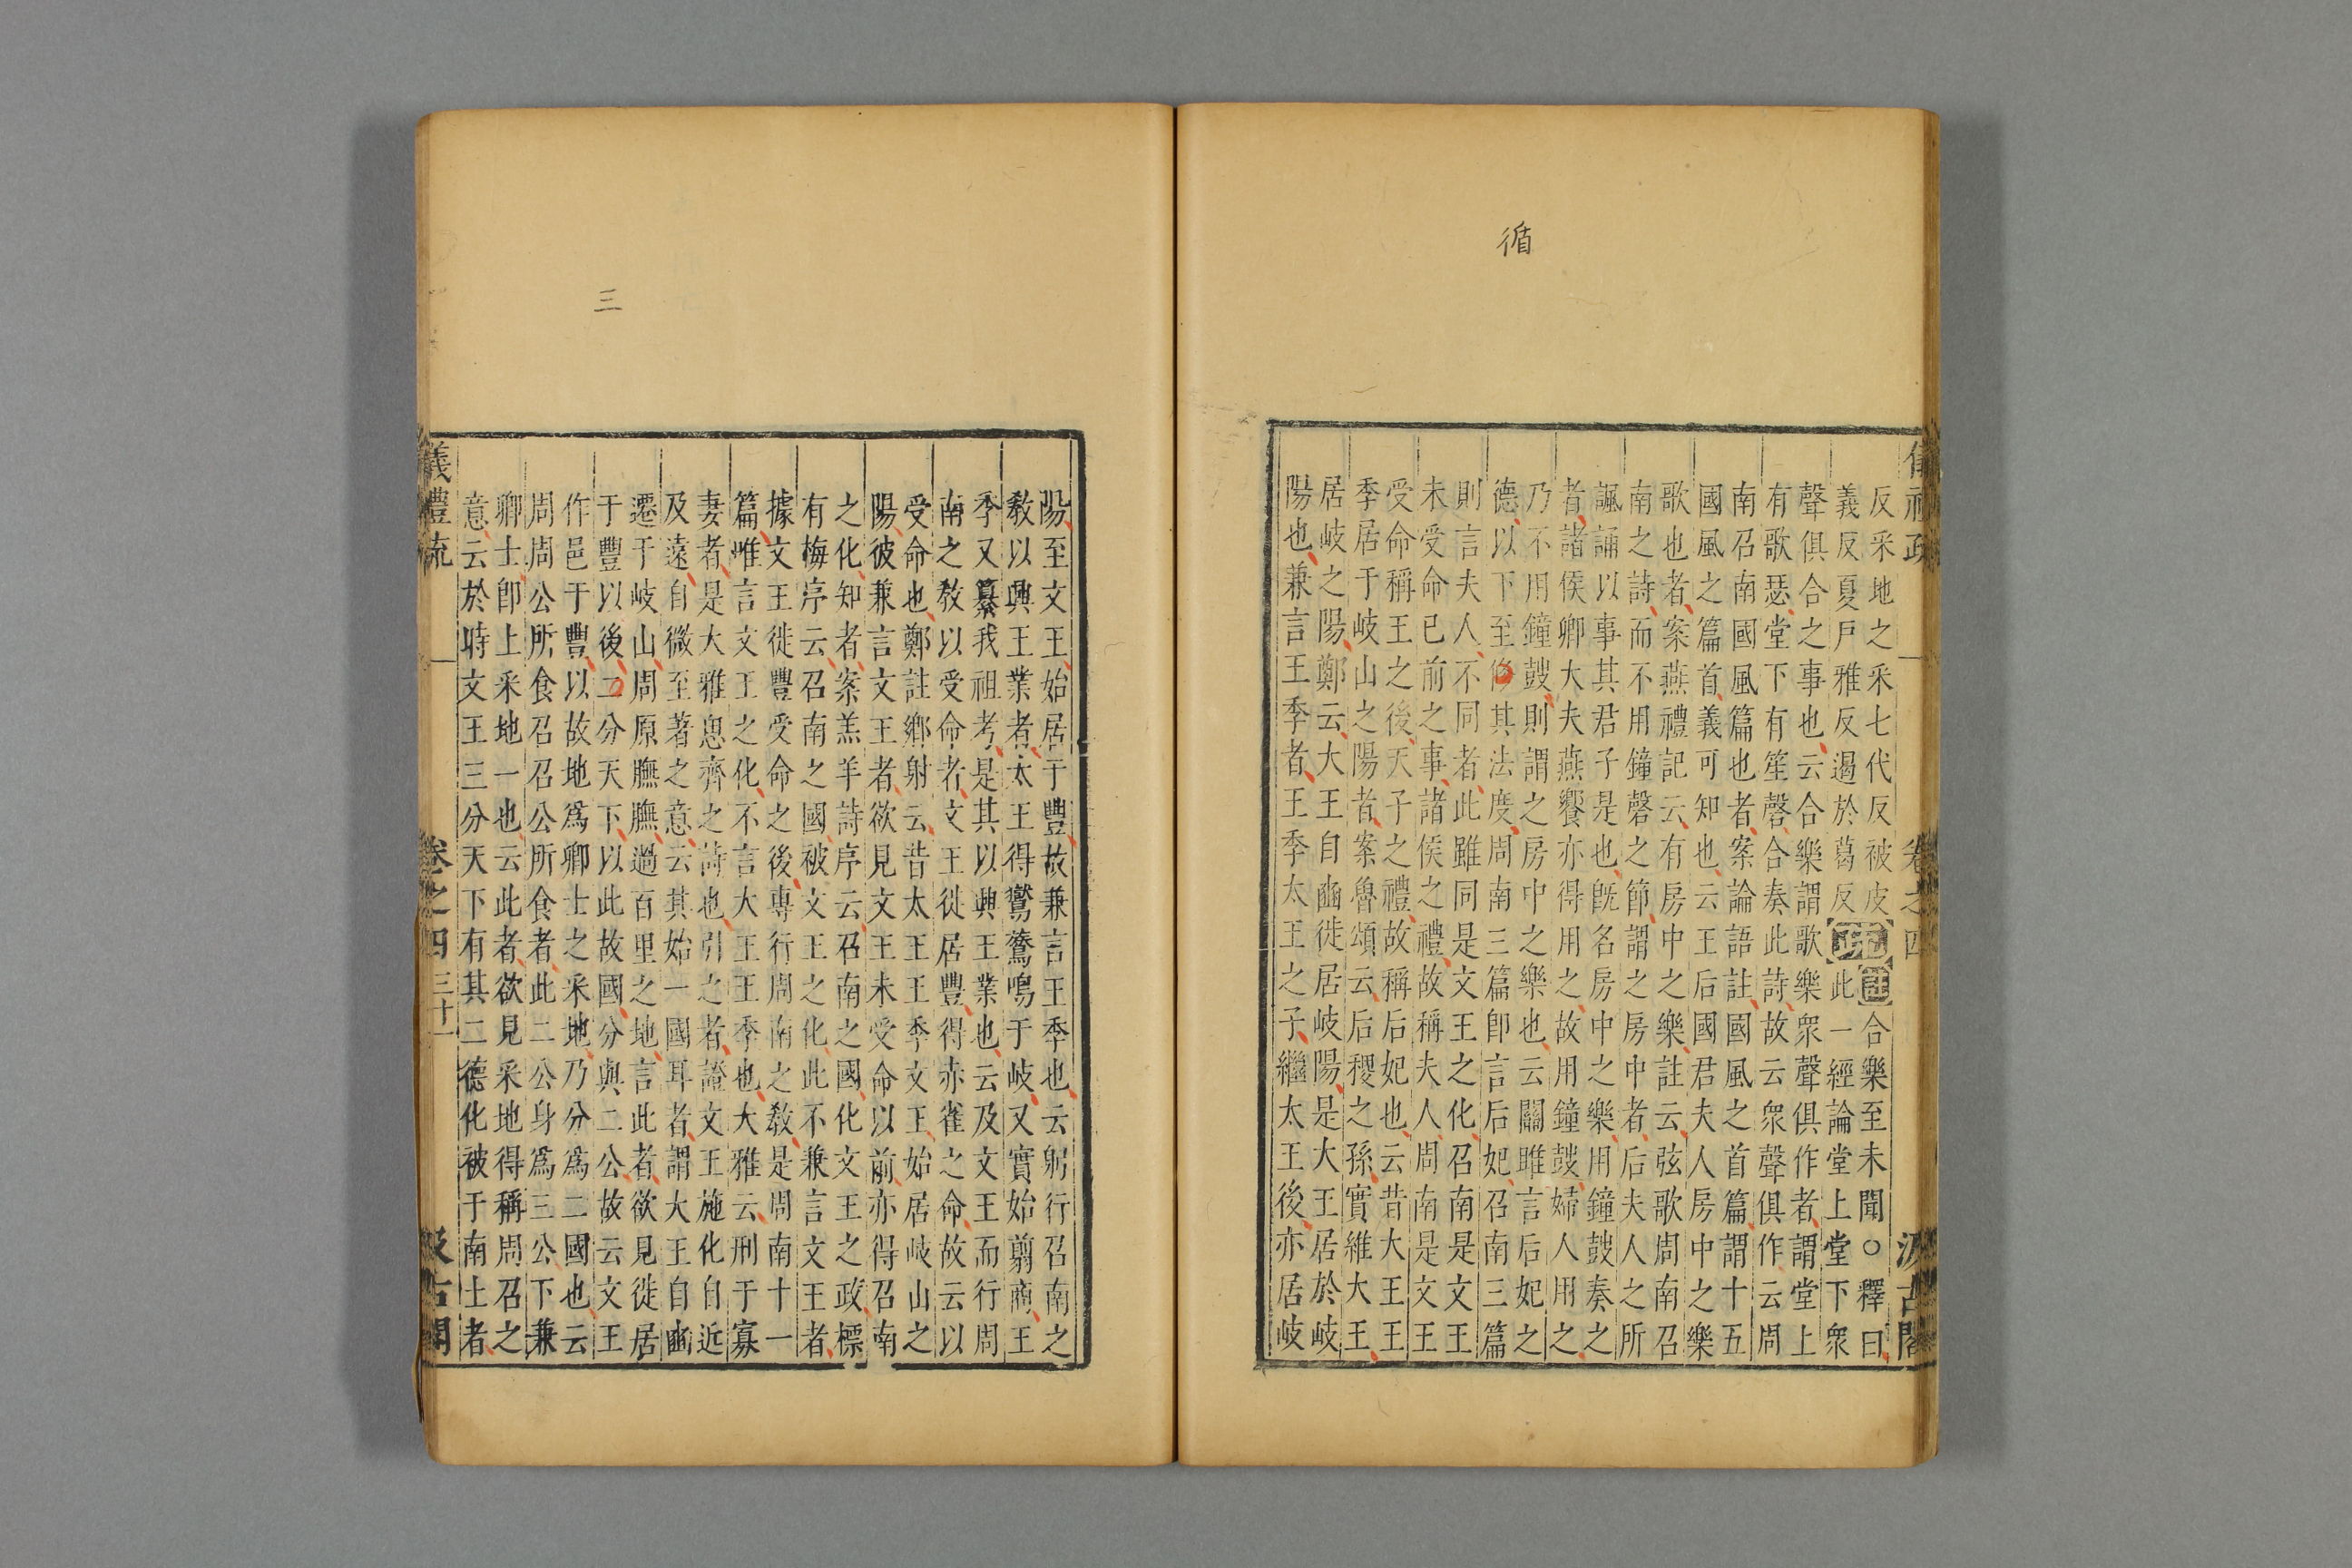 循
儀禮疏 卷之四 汲古閣
反采地之采七代反被皮
義反夏戶雅反遏於葛反
疏
註合樂至未聞○釋曰
此一經論堂上堂下衆
聲俱合之事也云合樂謂歌樂衆聲俱作者謂堂上
有歌瑟堂下有笙磬合奏此詩故云衆聲俱作云周
南召南國風篇也者案論語註國風之首篇謂十五
國風之篇首義可知也云王后國君夫人房中之樂
歌也者案燕禮記云有房中之樂註云弦歌周南召
南之詩而不用鐘磬之節謂之房中者后夫人之所
諷誦以事其君子是也旣名房中之樂用鐘鼓奏之
者諸侯卿大夫燕饗亦得用之故用鐘鼓婦人用之
乃不用鐘鼓則謂之房中之樂也云關雎言后妃之
德以下至脩其法度周南三篇卽言后妃召南三篇
則言夫人不同者此雖同是文王之化召南是文王
未受命已前之事諸侯之禮故稱夫人周南是文王
受命稱王之後天子之禮故稱后妃也云昔大王王
季居于岐山之陽者案魯頌云后稷之孫實維大王
居岐之陽鄭云大王自豳徙居岐陽是大王居於岐
陽也兼言王季者王季太王之子繼太王後亦居岐
三
陽至文王始居于豐故兼言王季也云躬行召南之
敎以興王業者太王得鸑鷟鳴于岐又實始翦商王
季又纂我祖考是其以興王業也云及文王而行周
南之敎以受命者文王徙居豐得赤雀之命故云以
受命也鄭註鄉射云昔太王王季文王始居岐山之
陽彼兼言文王者欲見文王未受命以前亦得召南
之化知者案羔羊詩序云召南之國化文王之政標
有梅序云召南之國被文王之化此不兼言文王者
據文王徙豐受命之後專行周南之敎是周南十一
篇唯言文王之化不言大王王季也大雅云刑于寡
妻者是大雅思齊之詩也引之者證文王施化自近
及遠自微至著之意云其始一國耳者謂大王自豳
遷于岐山周原膴膴過百里之地言此者欲見徙居
于豐以後二分天下以此故國分與二公故云文王
作邑于豐以故地爲卿士之采地乃分爲二國也云
周周公所食召召公所食者此二公身爲三公下兼
卿士卽上采地一也云此者欲見采地得稱周召之
意云於時文王三分天下有其二德化被于南土者
儀禮疏 卷之四 三十一 汲古閣